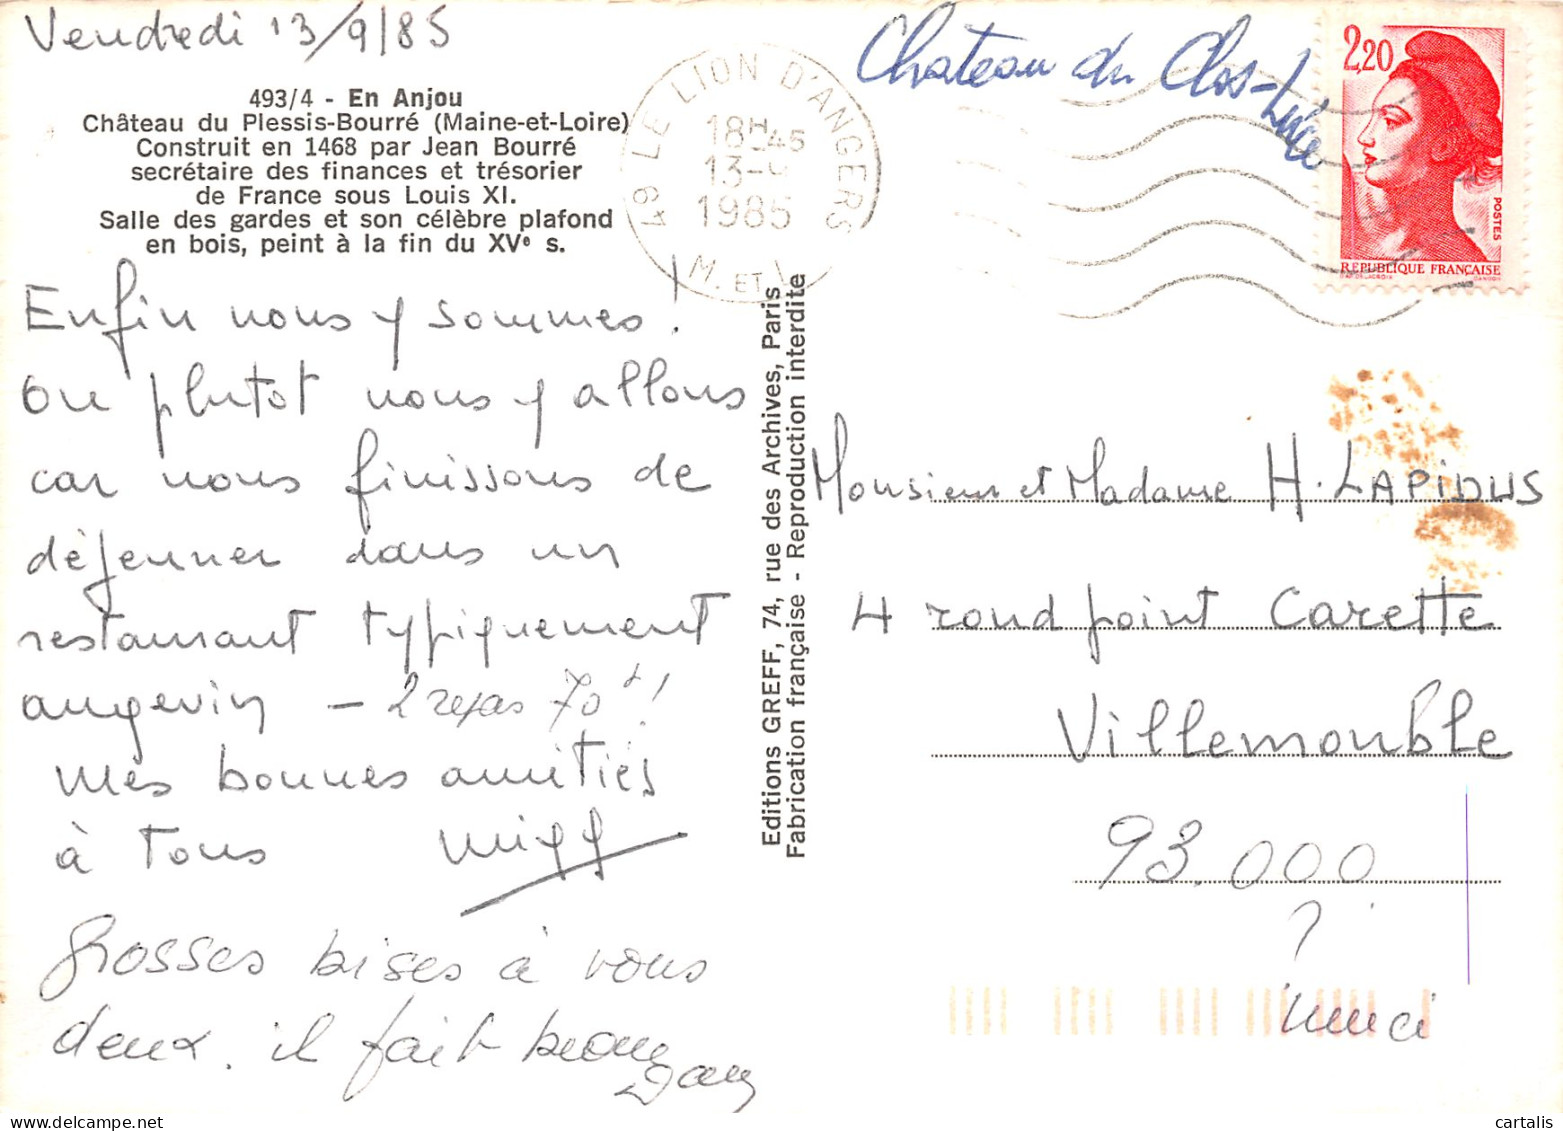 Vendredi 13/9/85
493/4 - En Anjou
Château du Plessis-Bourré (Maine-et-Loire)
Construit en 1468 par Jean Bourré
secrétaire des finances et trésorier
de France sous Louis XI.
Salle des gardes et son célèbre plafond
en bois, peint à la fin du XVe s.
Enfin nous y sommes !
Ou plutot nous y allons
car nous finissons de
déjeuner dans un
restaurant typiquement
angevin - 2 repas 70 F !
Mes bonnes amitiés
à tous
Grosses bises à vous
deux. il fait beau
Editions GREFF, 74, rue des Archives, Paris
Fabrication française - Reproduction interdite
49 LE LION D'ANGERS
18H45
13-9
1985
M. ET L
Chateau du Clos-Lucé
2,20
POSTES
RÉPUBLIQUE FRANÇAISE
Monsieur et Madame H. LAPIDUS
4 rond point Carette
Villemonble
93.000
?
merci
cartalis